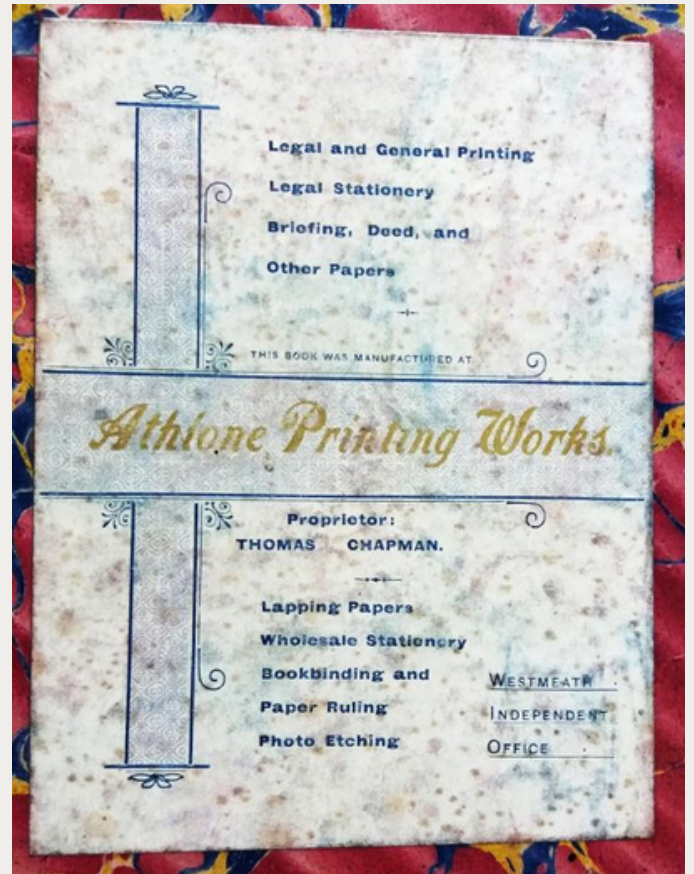 Legal and General Printing
Legal Stationery
Briefing, Deed, and
Other Papers
THIS BOOK WAS MANUFACTURED AT
Athlone Printing Works.
Proprietor:
THOMAS CHAPMAN.
Lapping Papers
Wholesale Stationery
Bookbinding and
Paper Ruling
Photo Etching
WESTMEATH
INDEPENDENT
OFFICE